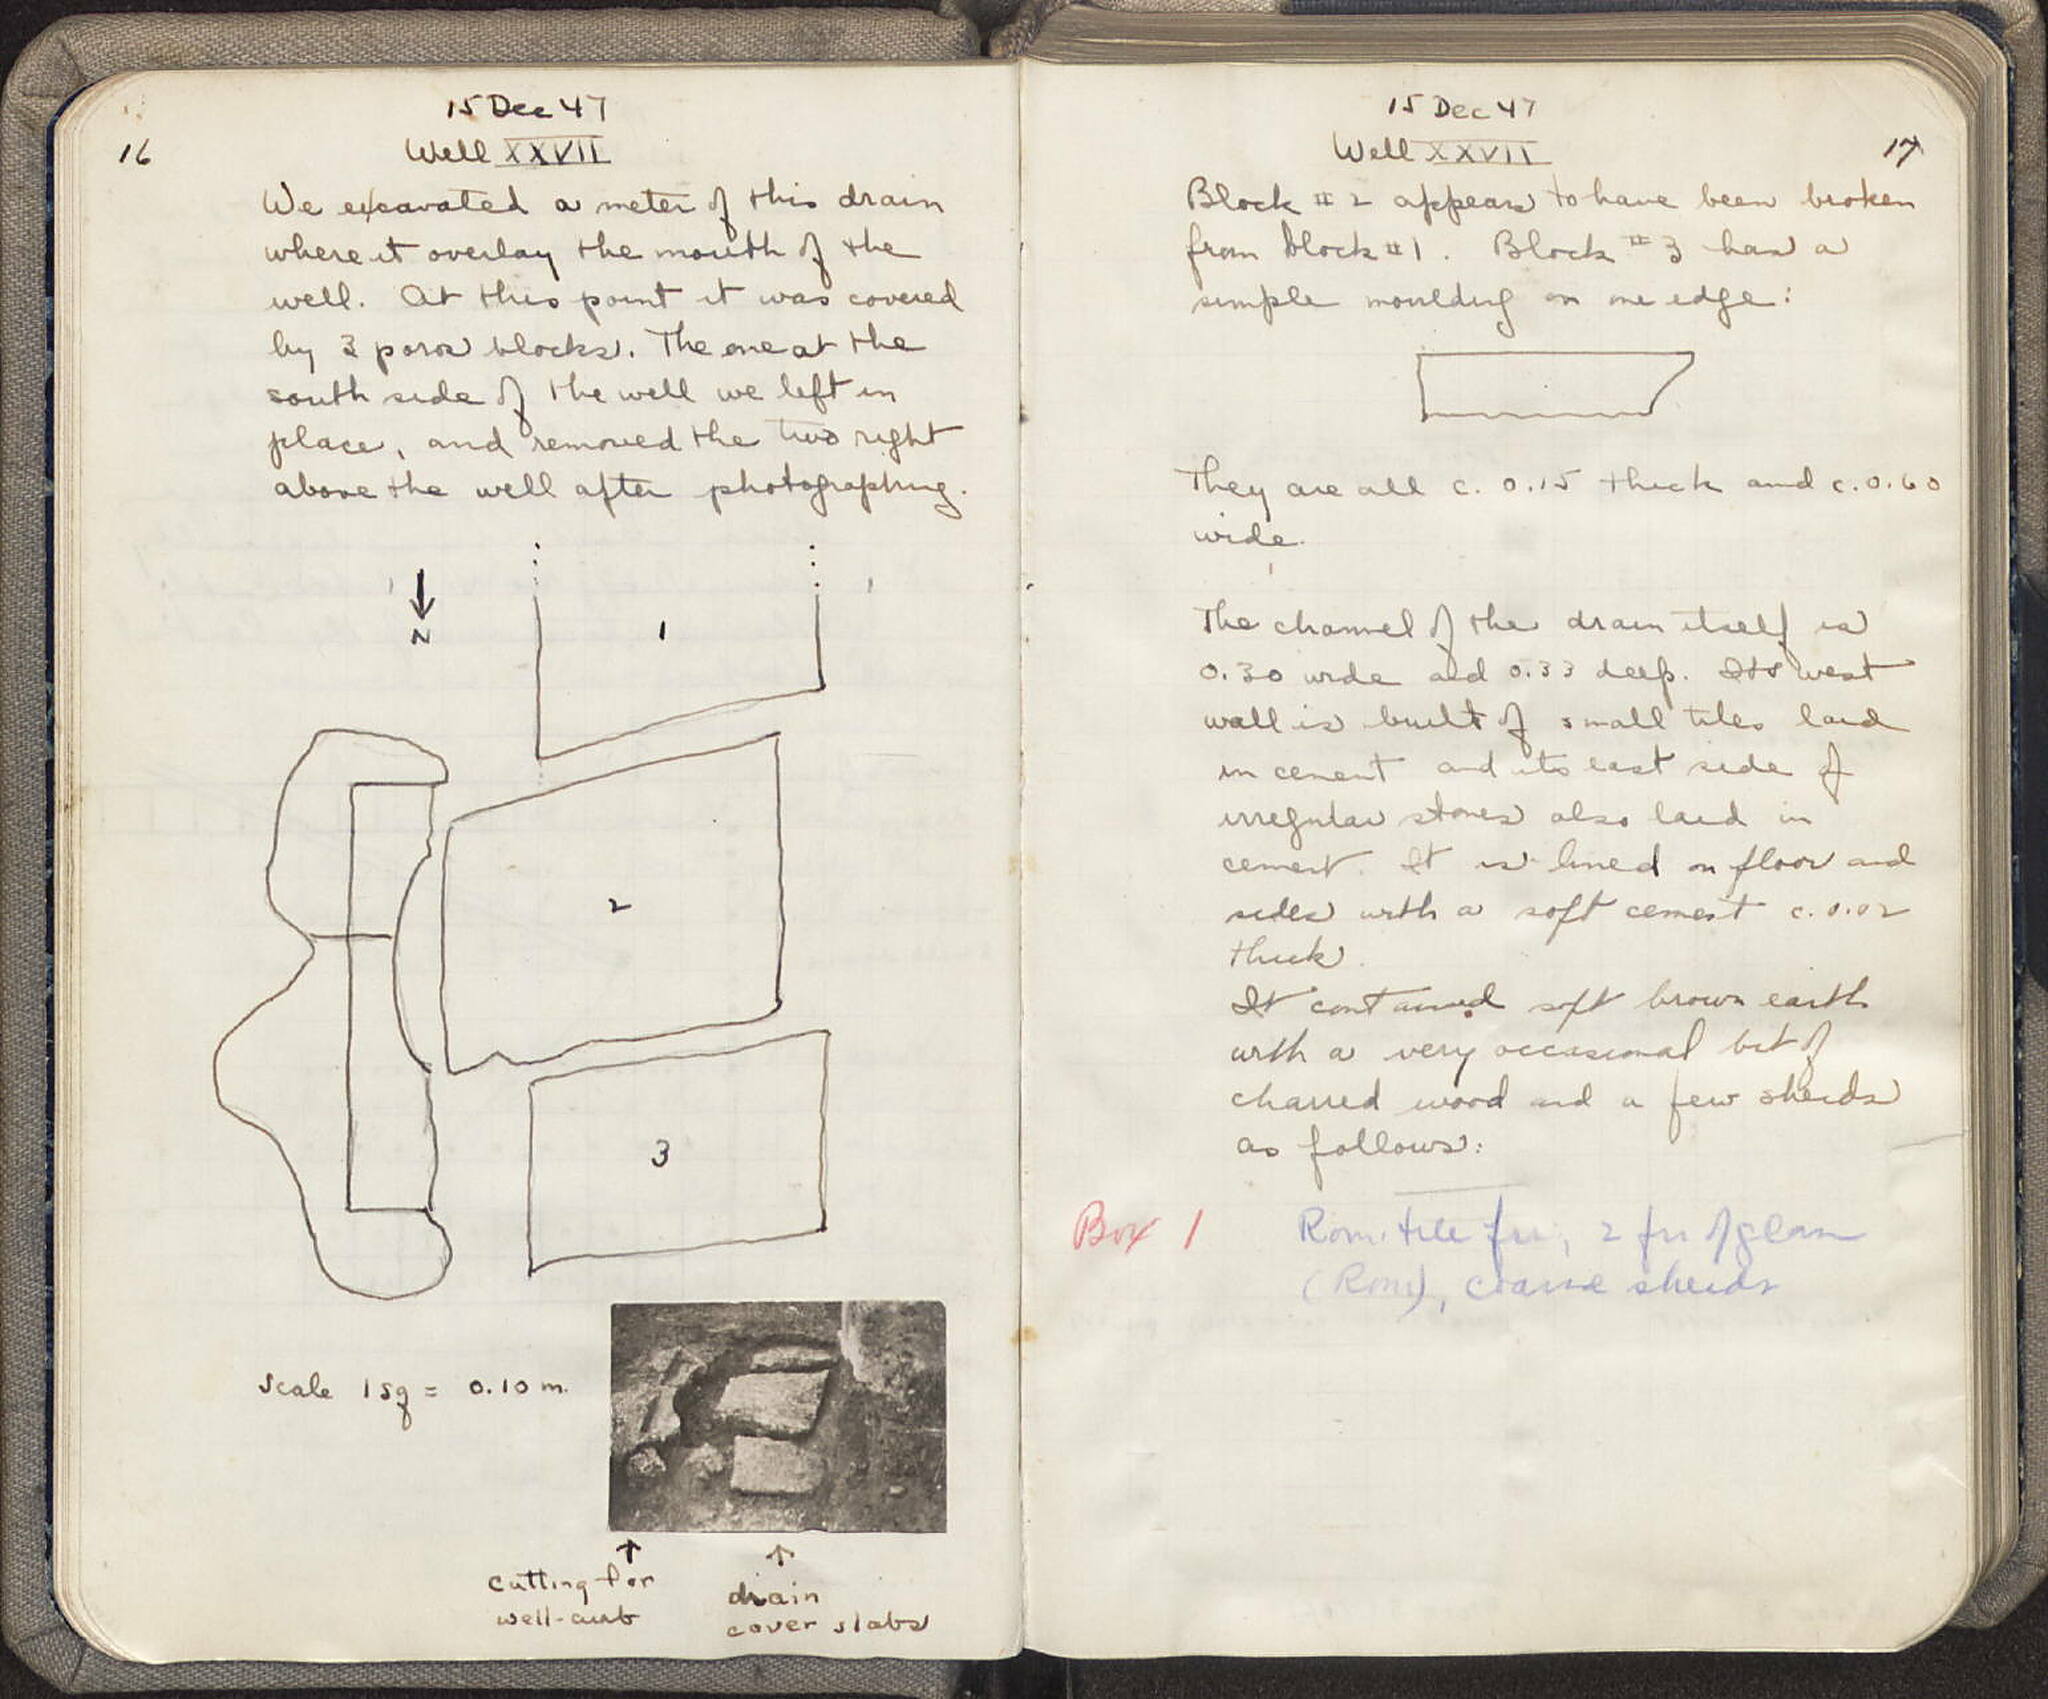 15 Dec 47
16
Well XXVII
We excavated a meter of this drain
where it overlay the mouth of the
well. At this point it was covered
by 3 poros blocks. The one at the
south side of the well we left in
place, and removed the two right
above the well after photographing.
N
1
2
3
Scale 1 sq = 0.10 m.
cutting for
well-curb
drain
cover slabs
15 Dec 47
Well XXVII
17
Block #2 appears to have been broken
from block #1. Block #3 has a
simple moulding on one edge:
They are all c. 0.15 thick and c. 0.60
wide.
The channel of the drain itself is
0.30 wide and 0.33 deep. Its west
wall is built of small tiles laid
in cement and its east side of
irregular stones also laid in
cement. It is lined on floor and
sides with a soft cement c. 0.02
thick.
It contained soft brown earth
with a very occasional bit of
charred wood and a few sherds
as follows:
Box 1
Rom. tile frr, 2 frr of glass
(Rom), coarse sherds